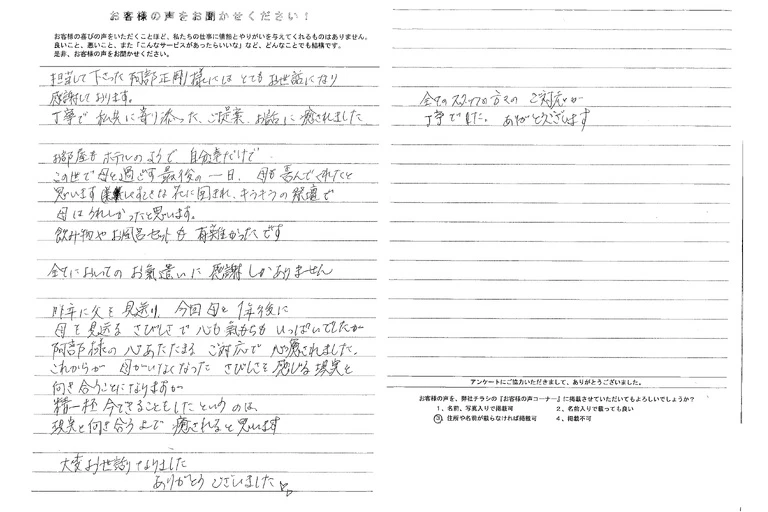 お客様の声をお聞かせください！
お客様の喜びの声をいただくことほど、私たちの仕事に情熱とやりがいを与えてくれるものはありません。
良いこと、悪いこと、また「こんなサービスがあったらいいな」など、どんなことでも結構です。
是非、お客様の声をお聞かせください。
担当して下さった阿部正剛様には とても お世話になり
感謝しております。
丁寧で 私共に寄り添った、ご提案、お話に 癒されました
お部屋も ホテルのようで、自分達だけで
この世で母と過ごす最後の一日、母も喜んでくれたと
思います すてきな花に囲まれ、キラキラの祭壇で
母は うれしかったと思います。
飲み物や お風呂セットも 有難かったです
全てにおいての お氣遣いに 感謝しかありません
昨年に父を見送り、今回 母を 1年後に
母を見送る さびしさで 心も氣持ちも いっぱいでしたが
阿部様の 心あたたまる ご対応で 心癒されました。
これからが 母がいなくなった さびしさを 感じる現実と
向き合うことになりますが
精一杯 今できることをした というのは、
現実と向き合う上で 癒されると思います
大変お世話になりました
ありがとうございました
全てのスタッフの方々の ご対応が
丁寧でした。ありがとうございます
アンケートにご協力いただきまして、ありがとうございました。
お客様の声を、弊社チラシの『お客様の声コーナー』に掲載させていただいてもよろしいでしょうか？
1、名前、写真入りで掲載可　2、名前入りで載っても良い
3、住所や名前が載らなければ掲載可　4、掲載不可